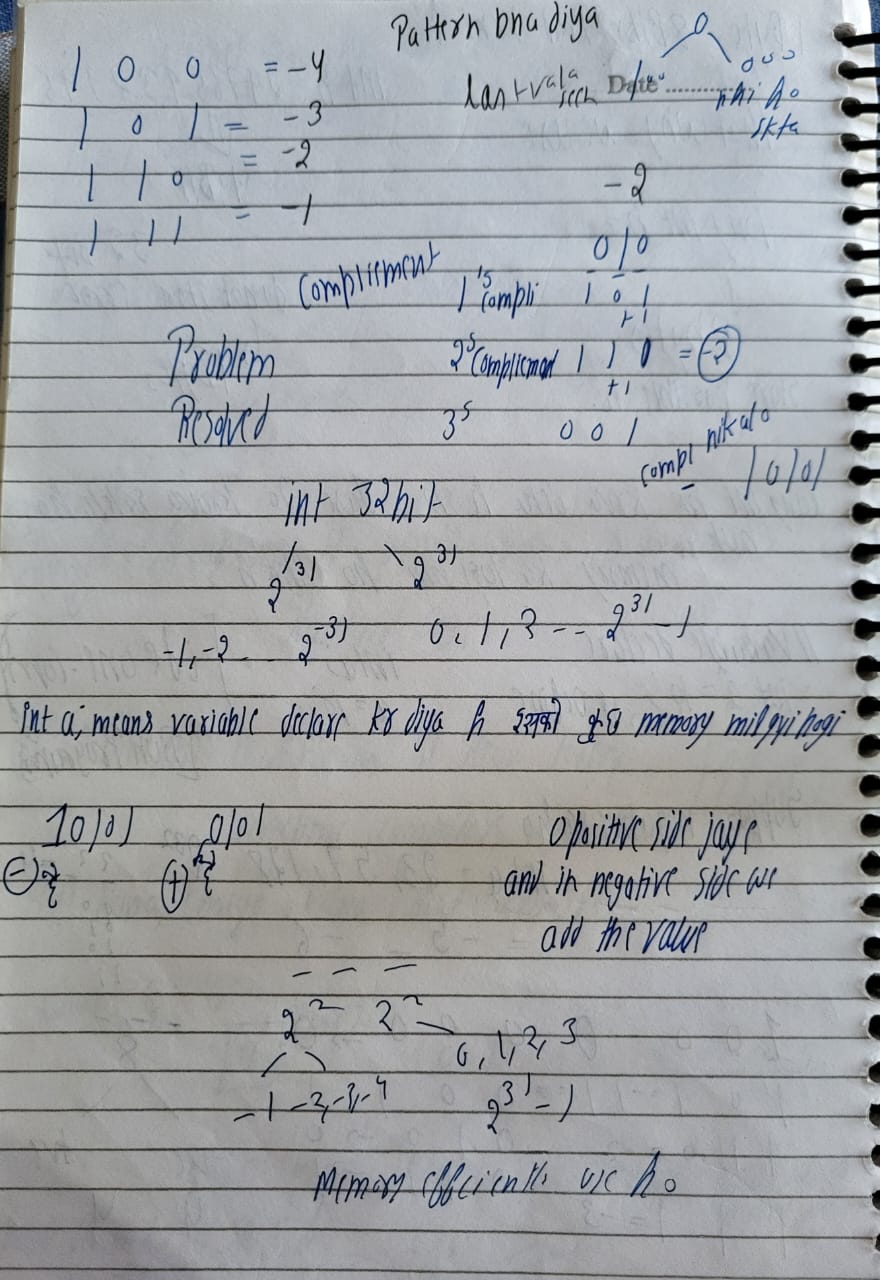 Pattern bna diya
1 0 0 = -4
0
100 000
lastvala seen Date nhi ho skta
1 0 1 = -3
1 1 0 = -2
1 1 1 = -1
-2
010
Compliement 1's compli 1 0 1
+1
Problem 2s Complicment 1 1 0 = -2
+1
Resolved 3s 0 0 1
compl nikalo
10101
int 32bit
2^31 2^31
-1, -2 .. 2^-31 0, 1, 2 -- 2^31 -1
int a; means variable declare kr diya h इसको कुछ memory milgyi hogi
10101 0101
- +
0 positive side jaye
and in negative side we
add the value
_ _ _
2^2 2^2
0, 1, 2, 3
-1 -2, -3, -4 2^31 -1
Memory efficiently use ho